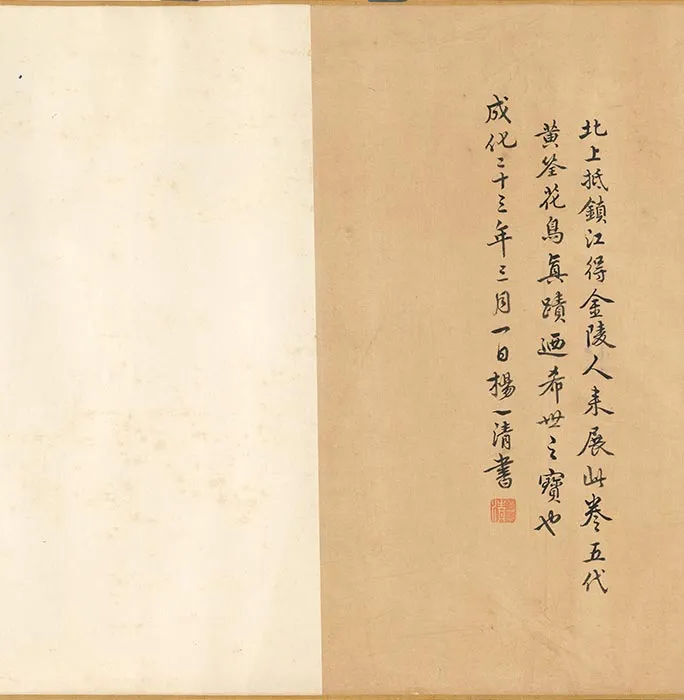 北上抵鎮江得金陵人来展此卷五代
黄筌花鳥真蹟迺希世之寶也
成化二十三年三月一日楊一清書